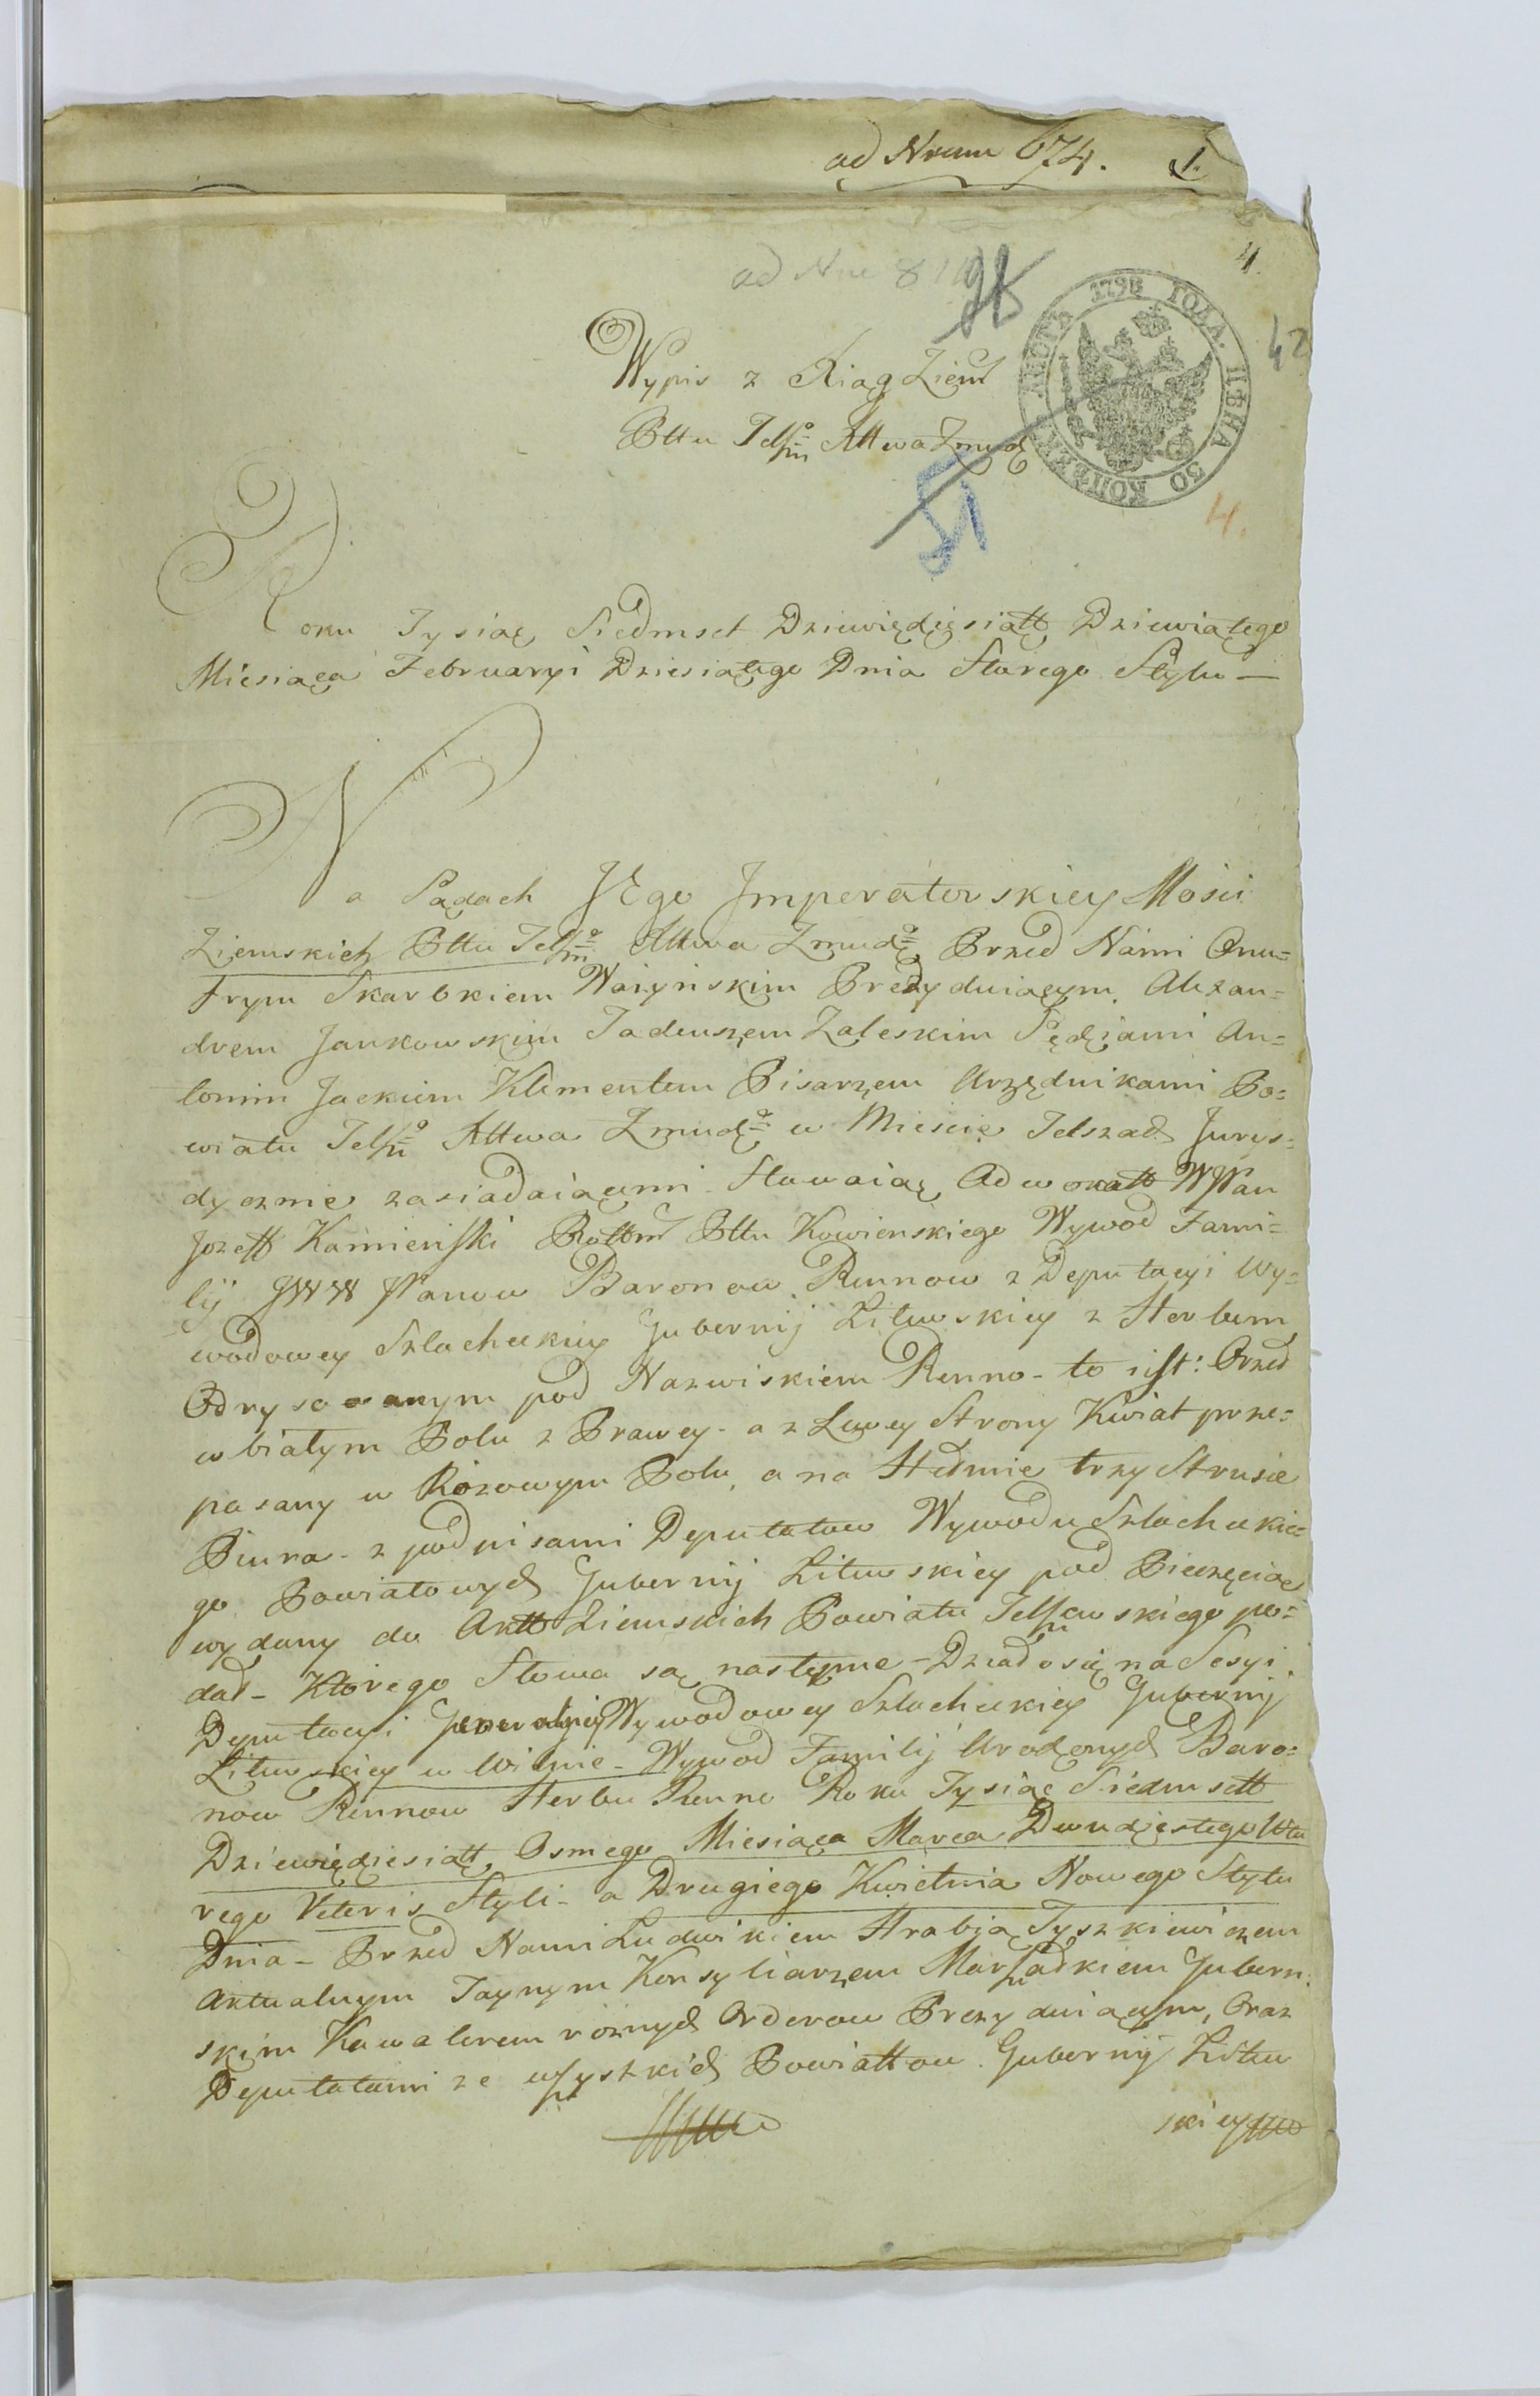 ad Nrum 674. 1.
4.
ad Nre 81
98
42
1798 ГОДА. ЦѢНА 30 КОПѢЕКЪ ЛИСТЪ
Wypis z Xiąg Ziem
Pttu Telszo Xttwa Zmudz
51
4.
Roku Tysiąc Siedmset Dziewiędziesiątt Dziewiątego
Miesiąca Februaryi Dziesiątego Dnia Starego Stylu —
Na Sądach JEgo Jmperatorskiey Mości
Ziemskich Pttu Telszo Xttwa Zmudzo Przed Nami Onu=
frym Skarbkiem Ważyńskim Prezyduiącym, Alexan=
drem Jankowskim Tadeuszem Zaleskim Sędziami An=
tonim Jackiem Klimentem Pisarzem Urzędnikami Po=
wiatu Telszo Xttwa Zmudzo w Mieście Telszach Jurys=
dycznie zasiadaiącemi Stawaiąc Adwokatt WJPan
Jozeff Kamieński Rottm Pttu Kowienskiego Wywod Fami=
lij JWW JPanow Baronow Rennow z Deputacyi Wy=
wodowey Szlacheckiey Gubernij Litewskiey z Herbem
Odrysowanym pod Nazwiskiem Renno - to iest: Orzeł
w białym Polu z Prawey - a z Lewey Strony Kwiat prze=
pasany w Rozowym Polu, a na Hełmie trzy Strusie
Piura - z podpisami Deputatow Wywodu Szlacheckie=
go Powiatowych Gubernij Litewskiey pod Pieczęcią
wydany do Aktt Ziemskich Powiatu Telszewskiego po=
dał - Ktorego Słowa są następne - Działo się na Sesyi
Deputacyi Jeneralney Wywodowey Szlacheckiey Gubernij
Litewskiey w Wilnie - Wywod Familij Urodzonych Baro=
now Rennow Herbu Renne Roku Tysiąc Siedmsett
Dziewiędziesiątt Osmego Miesiąca Marca Dwudziestego Wtu
rego Veteris Styli - a Drugiego Kwietnia Nowego Stylu
Dnia - Przed Nami Ludwikiem Hrabią Tyszkiewiczem
Aktualnym Taynym Konsyliarzem Marszałkiem Guberń
skim Kawalerem rożnych Orderow Prezyduiącym, Oraz
Deputatami ze wszystkich Powiattow Gubernij Litew
skiey